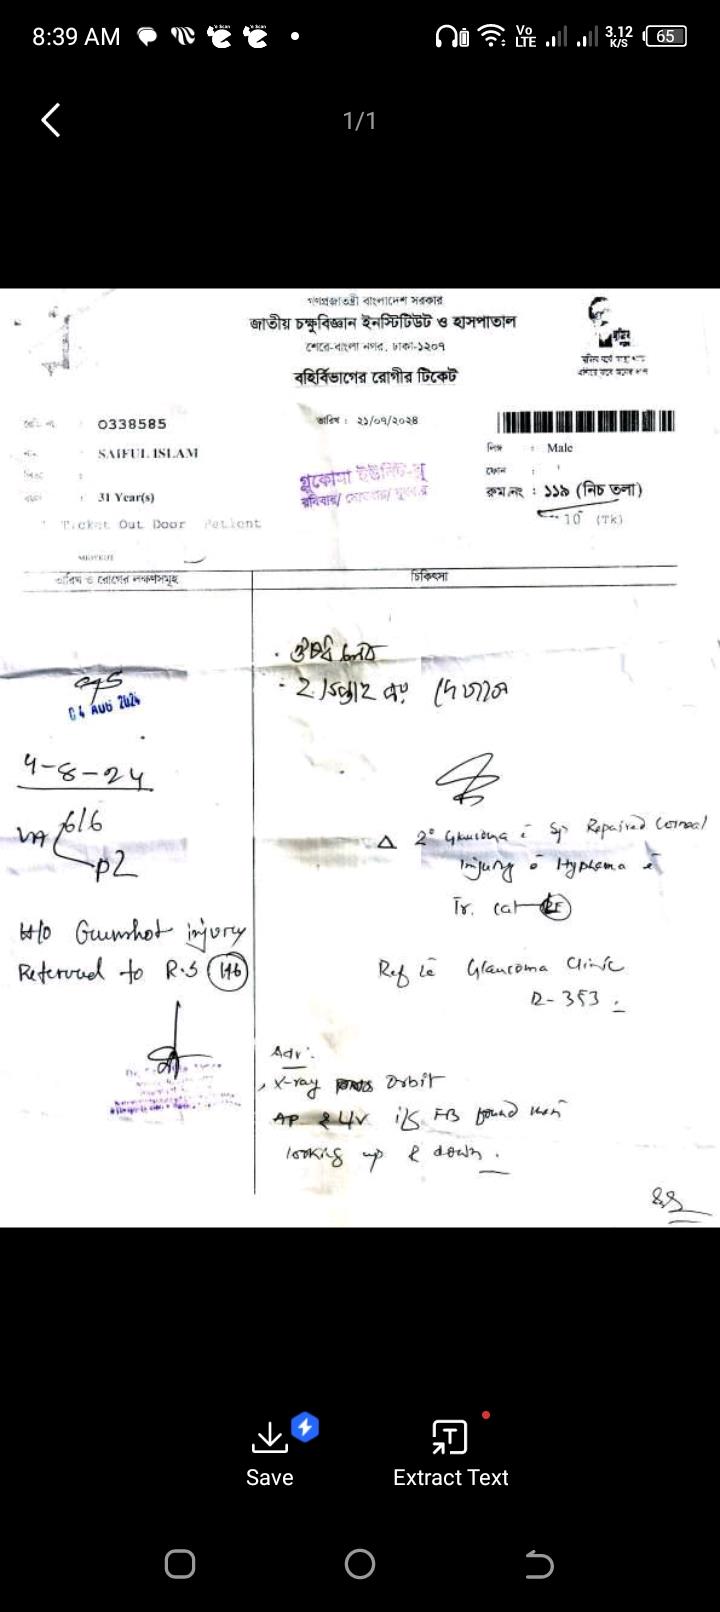 8:39 AM
Vo LTE 3.12 K/S 65
1/1
গণপ্রজাতন্ত্রী বাংলাদেশ সরকার
জাতীয় চক্ষুবিজ্ঞান ইনস্টিটিউট ও হাসপাতাল
শেরে-বাংলা নগর, ঢাকা-১২০৭
বহির্বিভাগের রোগীর টিকেট
0338585
তারিখ : ২১/০৭/২০২৪
SAIFUL ISLAM
লিঙ্গ : Male
ফোন :
31 Year(s)
গ্লুকোমা ইউনিট-
রবিবার/ সোমবার/ বুধবার
রুম নং : ১১৯ (নিচ তলা)
Ticket Out Door Patient
10 (Tk)
তারিখ ও রোগের লক্ষণসমূহ
চিকিৎসা
04 AUG 2024
4-8-24
VA 6/6
PL
H/O Gunshot injury
Referred to R.S 146
Δ 2° Glaucoma c̄ S/P Repaired Corneal
injury c̄ Hyphema c̄
Tr. Cat RE
Ref to Glaucoma Clinic
R-353
Adv:
X-ray Orbit
AP & L/V if FB found then
looking up & down.
Save
Extract Text